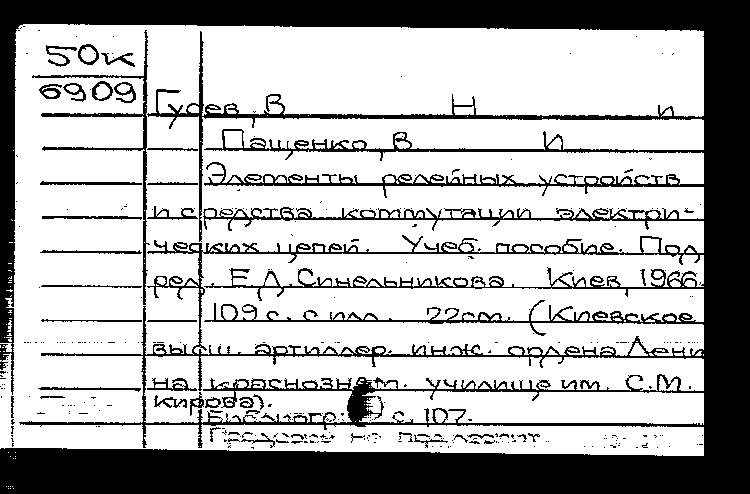 50к
6909
Гусев, В Н и
Пащенко, В И
Элементы релейных устройств
и средства коммутации электри-
ческих цепей. Учеб. пособие. Под
ред. Е.Д. Синельникова. Киев, 1966.
109 с. с илл. 22см. (Киевское
высш. артиллер. инж. ордена Лени
на краснознам. училище им. С.М.
Кирова).
Библиогр: с. 107.
Продаже не подлежит